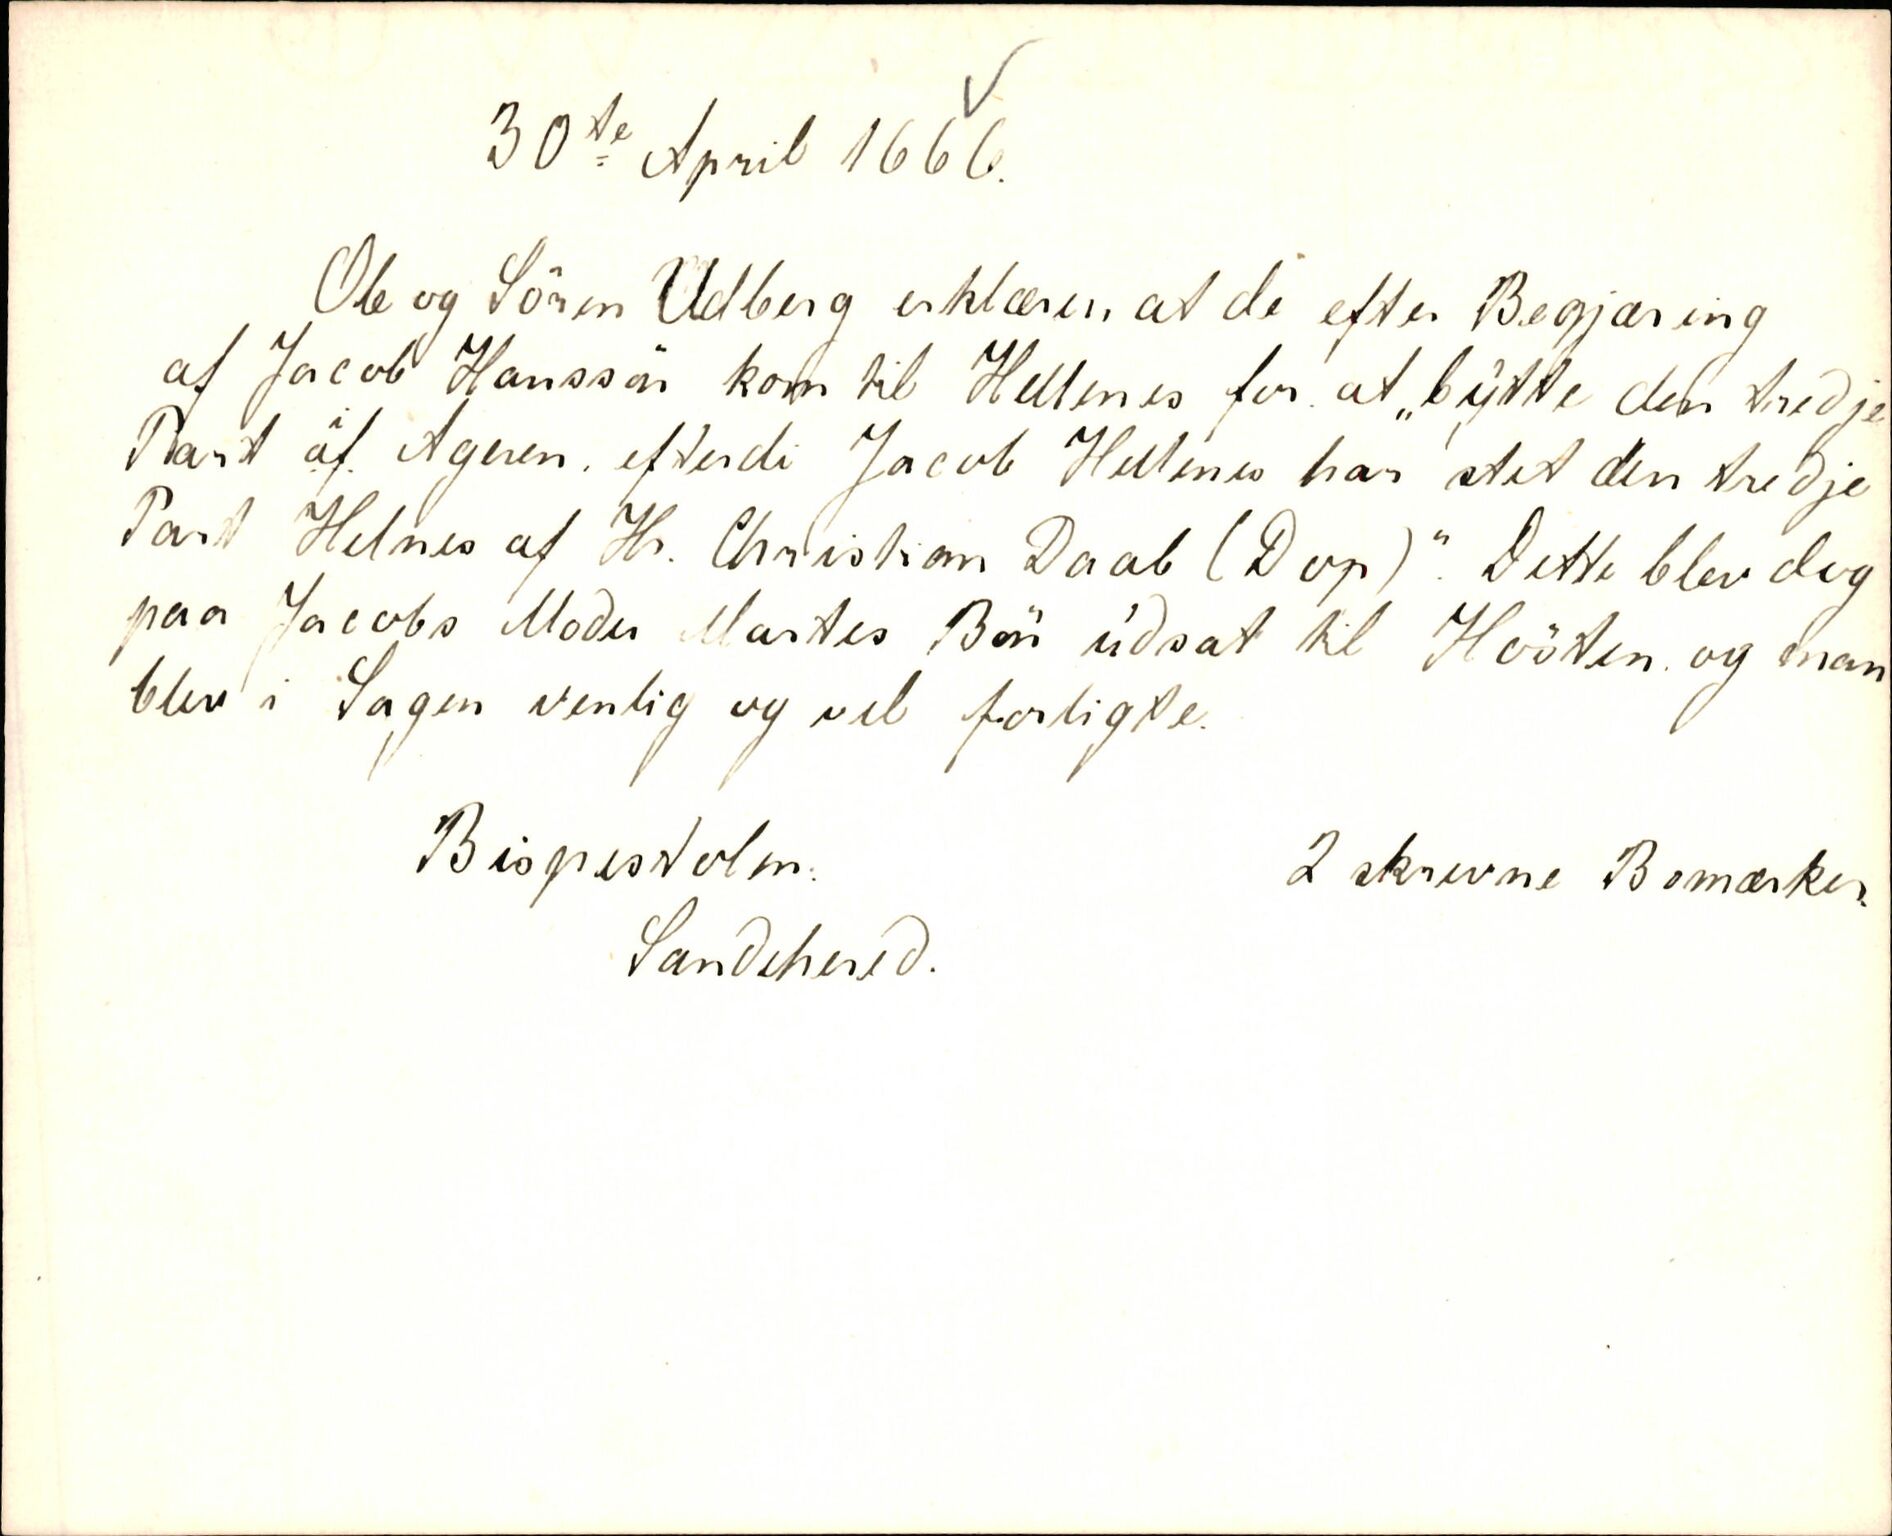 30te April 1666.
Ole og Sören Udberg erklærer, at de efter Begjæring
af Jacob Hanssön kom til Hellenes for at „bÿtte den tredje
Part af Ageren, efterdi Jacob Hellenes har stet den tredje
Part Helnes af Hr. Christian Daab (Dop)“. Dette blev dog
paa Jacobs Moder Martes Bön udsat til Hösten og man
blev i Sagen venlig og vel forligte.
Bispestolen. 2 skrevne Bomærker.
Sandehered.